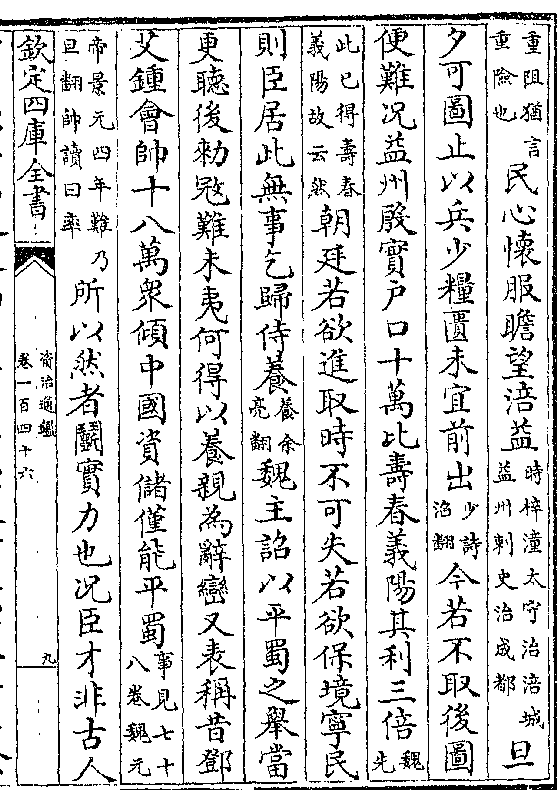 重阻猶言重險也民心懷服瞻望涪益時梓潼太守治涪城益州刺史治成都旦
夕可圖止以兵少糧匱未宜前出少詩沼翻今若不取後圖
便難况益州殷實户口十萬比壽春義陽其利三倍魏先
此已得壽春義陽故云然朝廷若欲進取時不可失若欲保境寧民
則臣居此無事乞歸侍養養余亮翻魏主詔以平蜀之舉當
更聽後勑宼難未夷何得以養親為辭巒又表稱昔鄧
艾鍾會帥十八萬衆傾中國資儲僅能平蜀事見七十八卷魏元
帝景元四年難乃旦翻帥讀曰率所以然者鬬實力也况臣才非古人
欽定四庫全書
資治通鑑
卷一百四十六
九